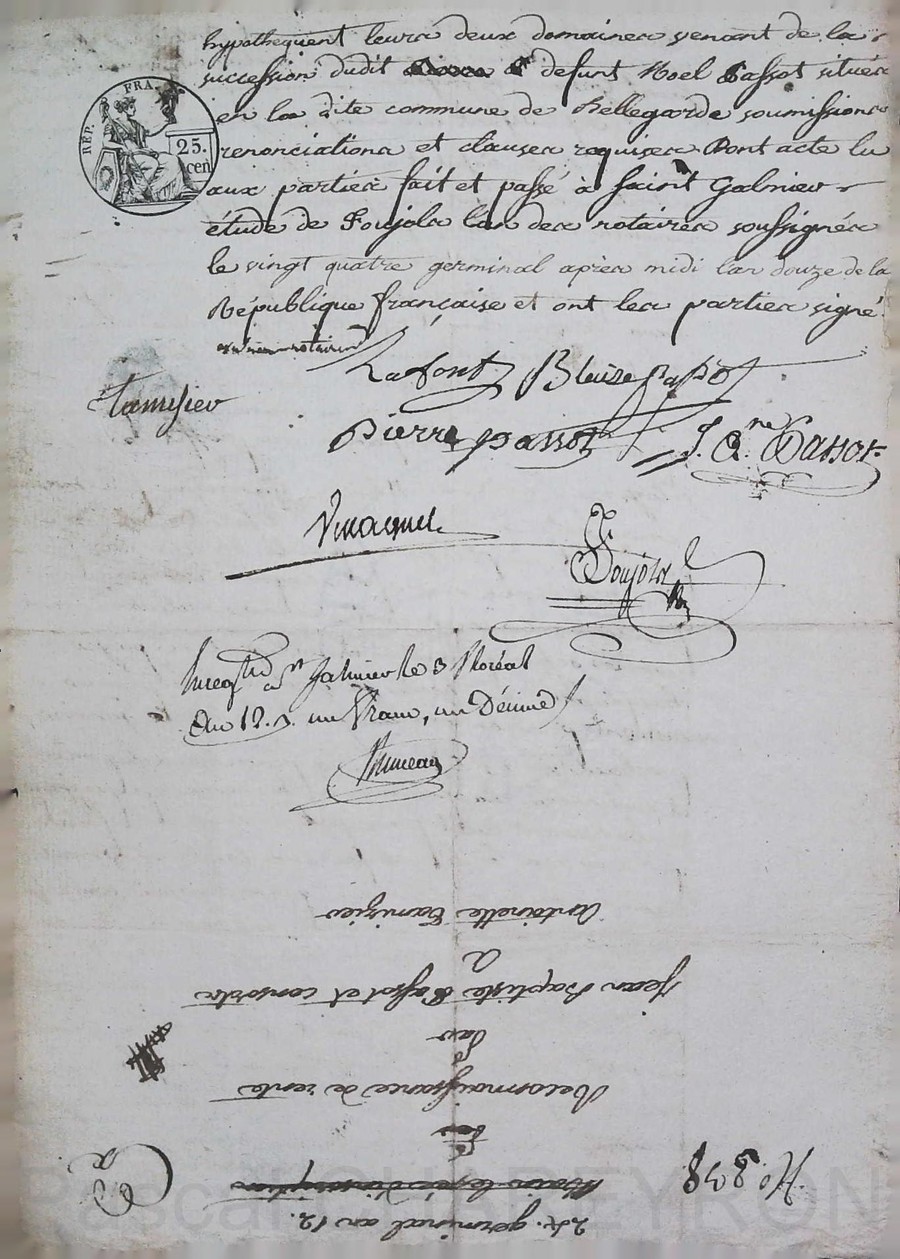 hypothequent leurs deux domaines venant de la
succession dudit defunt Noel Passot situés
en la dite commune de Bellegarde soumissions
renonciations et clauses requises Dont acte lu
aux parties fait et passé à Saint Galmier
étude de Poujols l'un des notaires soussignés
le vingt quatre germinal après midi l'an douze de la
République française et ont les parties signé
REP. FRA.
25.
cen
Lafont Blaize Passot
tamisier
Pierre passot J. B. Passot
Poujols
Enregtré à St Galmier le 3 floréal
an 12. un franc, un Décime
24. germinal an 12.
Reconnaissance de rente
Par
Jean Baptiste Passot et consorts
a
Antoinette Tamizier
No. 838
Pascal CHABEYRON